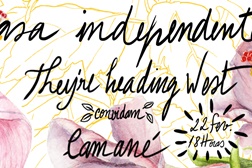 asa independente
They're heading West
convidam
Camané
22 fev.
18 Horas